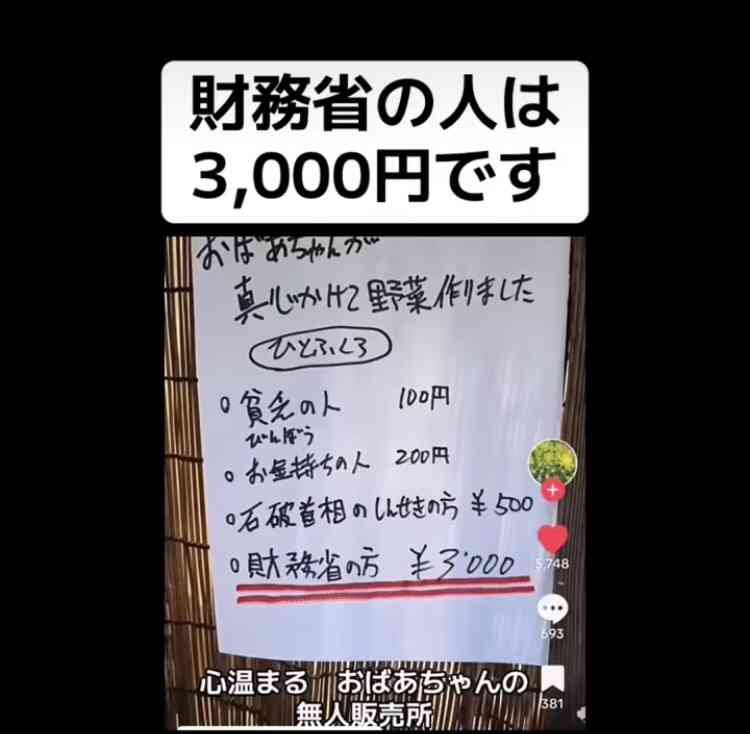 財務省の人は
3,000円です
おばあちゃんが
真心かけて野菜作りました
ひとふくろ
○貧乏の人 100円
びんぼう
○お金持ちの人 200円
○石破首相のしんせきの方 ¥500
○財務省の方 ¥3'000
3,748
693
381
心温まる おばあちゃんの
無人販売所